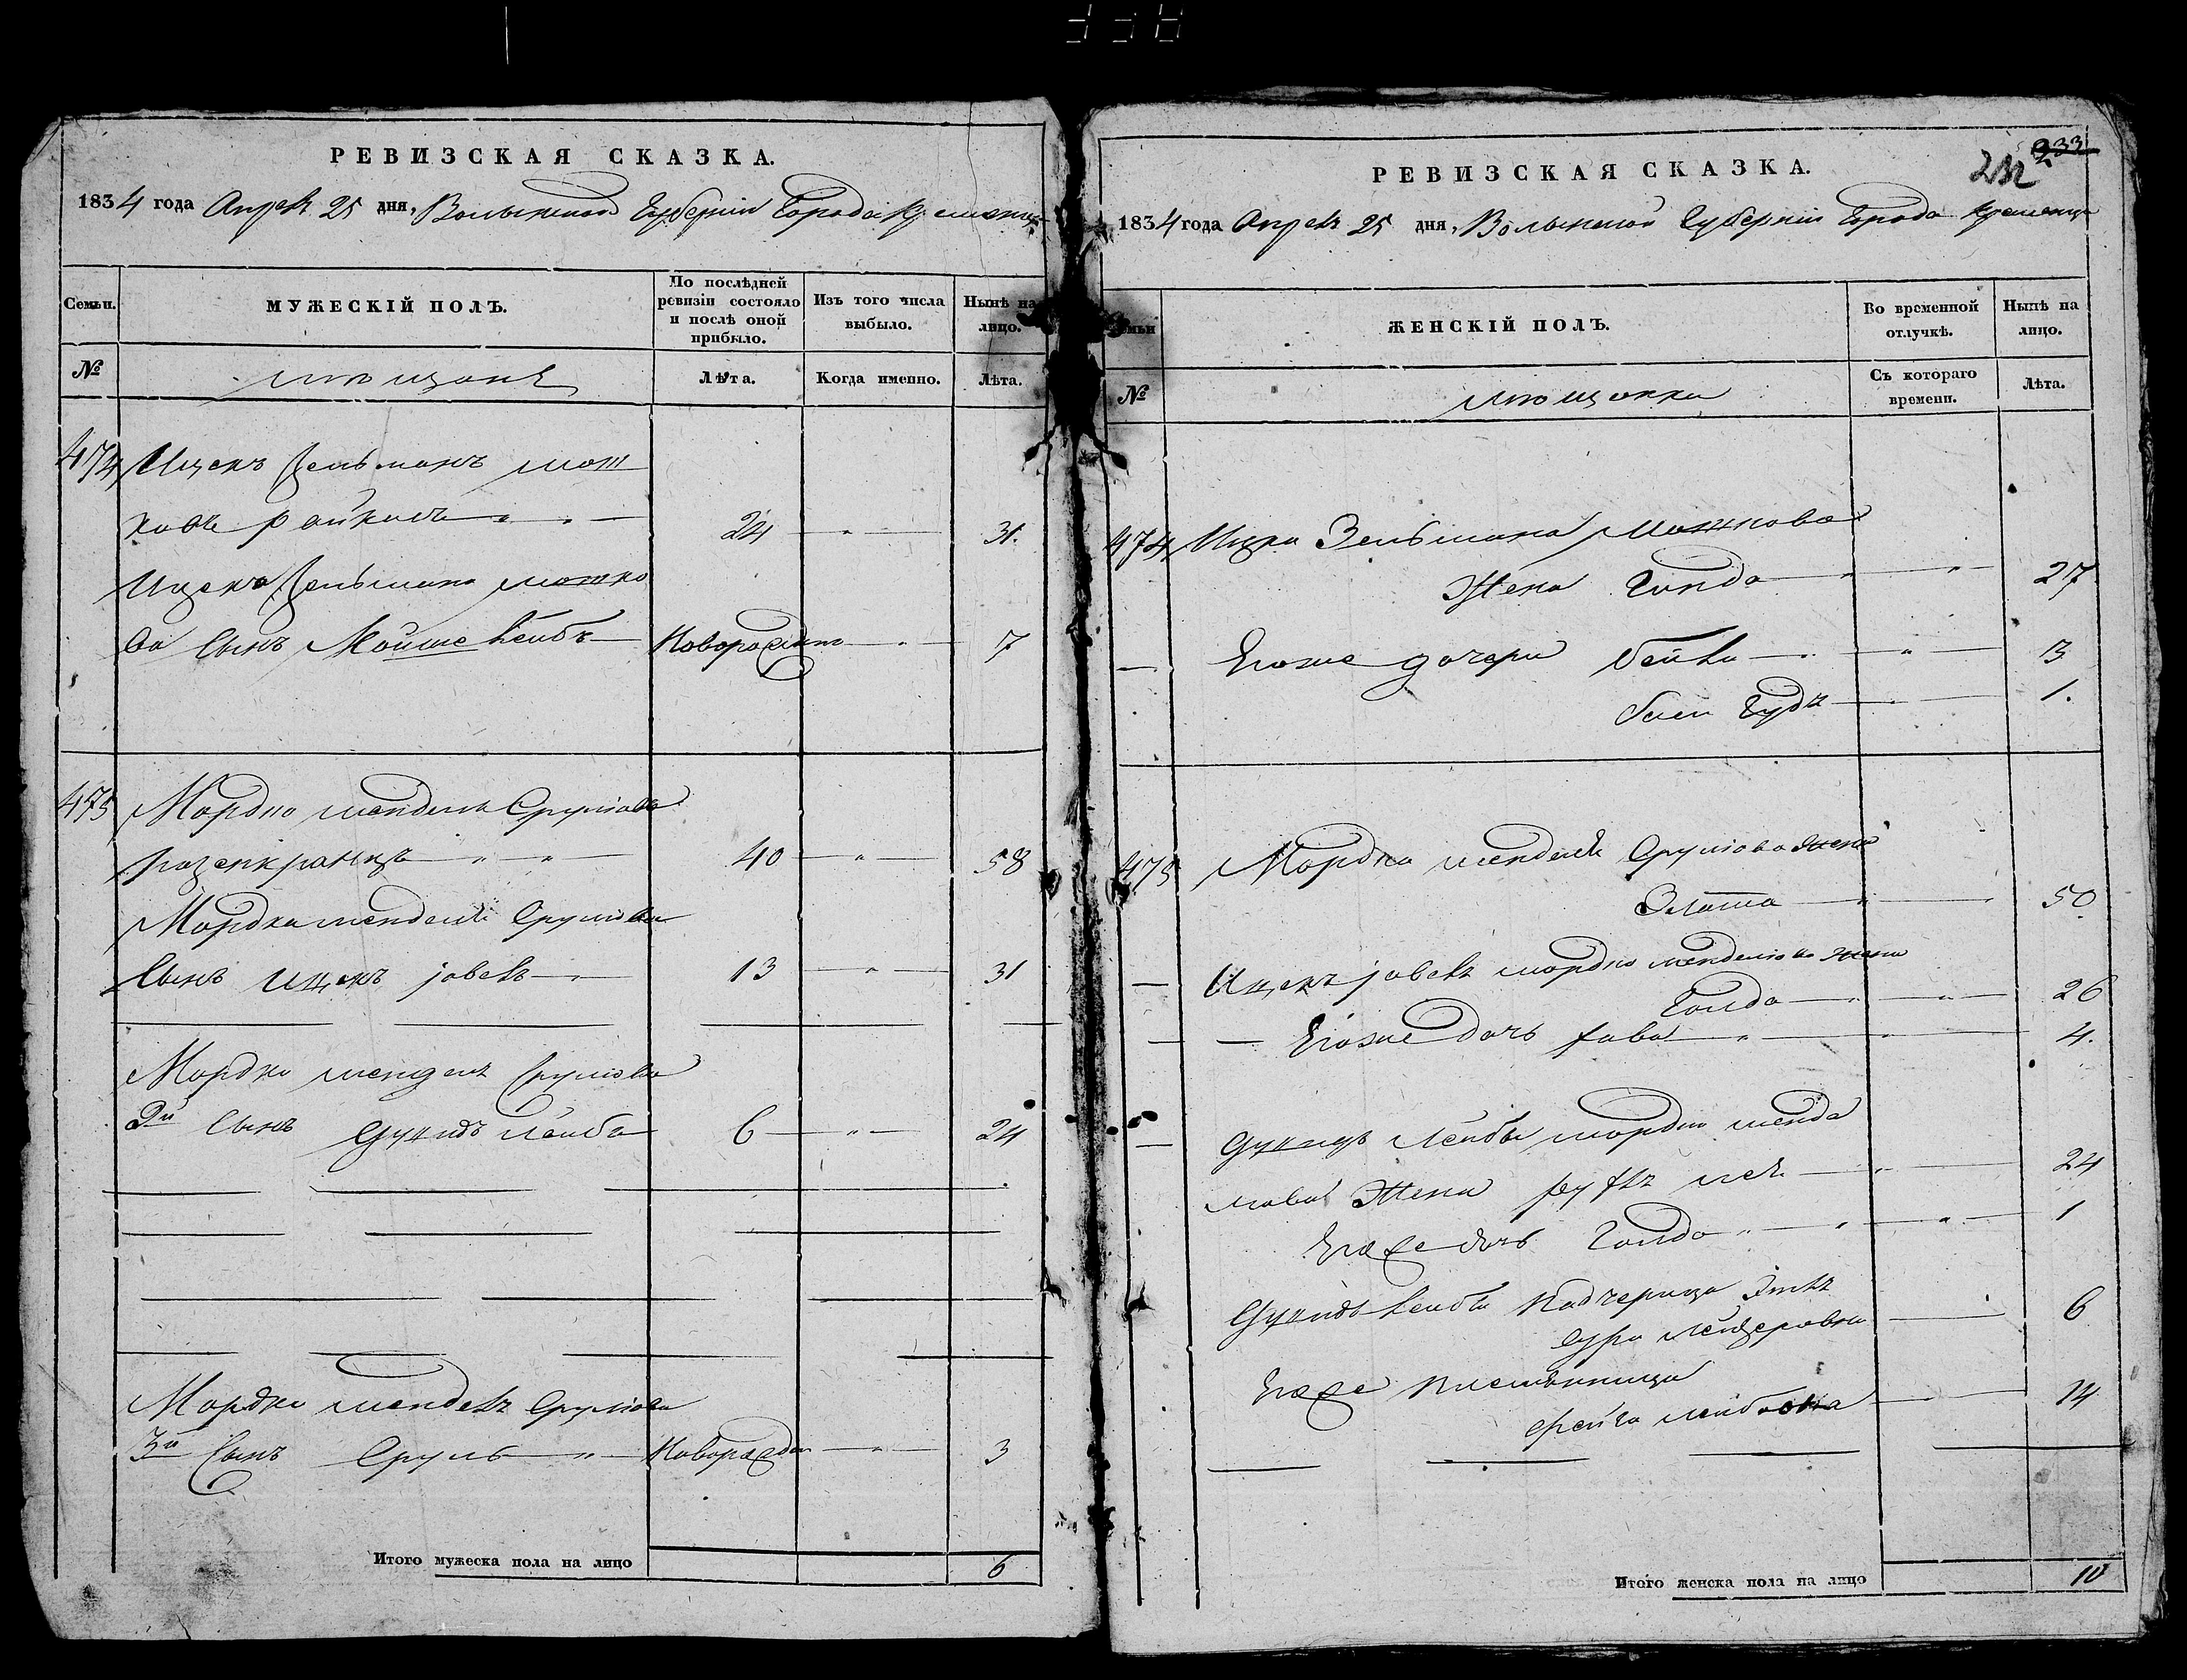 РЕВИЗСКАЯ СКАЗКА.
1834 года Апреля 25 дня, Волынской Губернии Города Кременца
Семьи.
МУЖЕСКІЙ ПОЛЪ.
По послѣдней ревизіи состояло и послѣ оной прибыло.
Изъ того числа выбыло.
Нынѣ на лицо.
№
мещане
Лѣта.
Когда именно.
Лѣта.
474 Ицекъ Зельманъ Мош
ковъ 24 31.
Ицека Зельмана Мошко
ва Сынъ Мойше Лейбъ Новорожден 7
475 Мордко Мендель Срулiовъ
40 58
Мордка Менделя Срулiова
Сынъ Ицекъ 13 31
Мордка Мендель Срулiова
2й Сынъ Лейба 6 24
Мордка Мендель Срулiова
3й Сынъ Сруль Новорожден 3
Итого мужеска пола на лицо 6
РЕВИЗСКАЯ СКАЗКА.
233
232
1834 года Апреля 25 дня, Волынской Губернии Города Кременца
Семьи
ЖЕНСКІЙ ПОЛЪ.
Во временной отлучкѣ.
Нынѣ на лицо.
№
мещанки
Съ котораго времени.
Лѣта.
474 Ицка Зельмана Мошкова
Жена 27
Егоже дочери Бейла 3
1.
475 Мордка Менделя Срулiова жена
Злата 50
Ицекъ Мордко Менделiова жена
Голда 26
Егоже дочь Хава 4.
Лейбы Мордко Менде
лова Жена 24
Егоже дочь Голда 1
Лейбы Падчерица
Сура 6
Егоже племянница
Фейга Лейбовна 14
Итого женска пола на лицо 10